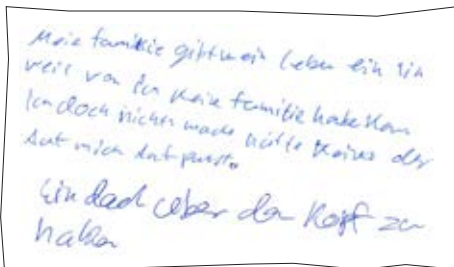 Meie familie gibt mein leben ein sin
weil von ich keine familie habe kan
Ich doch nichts mache hätte keiner der
Auf mich
Ein dach über den Kopf zu
haben